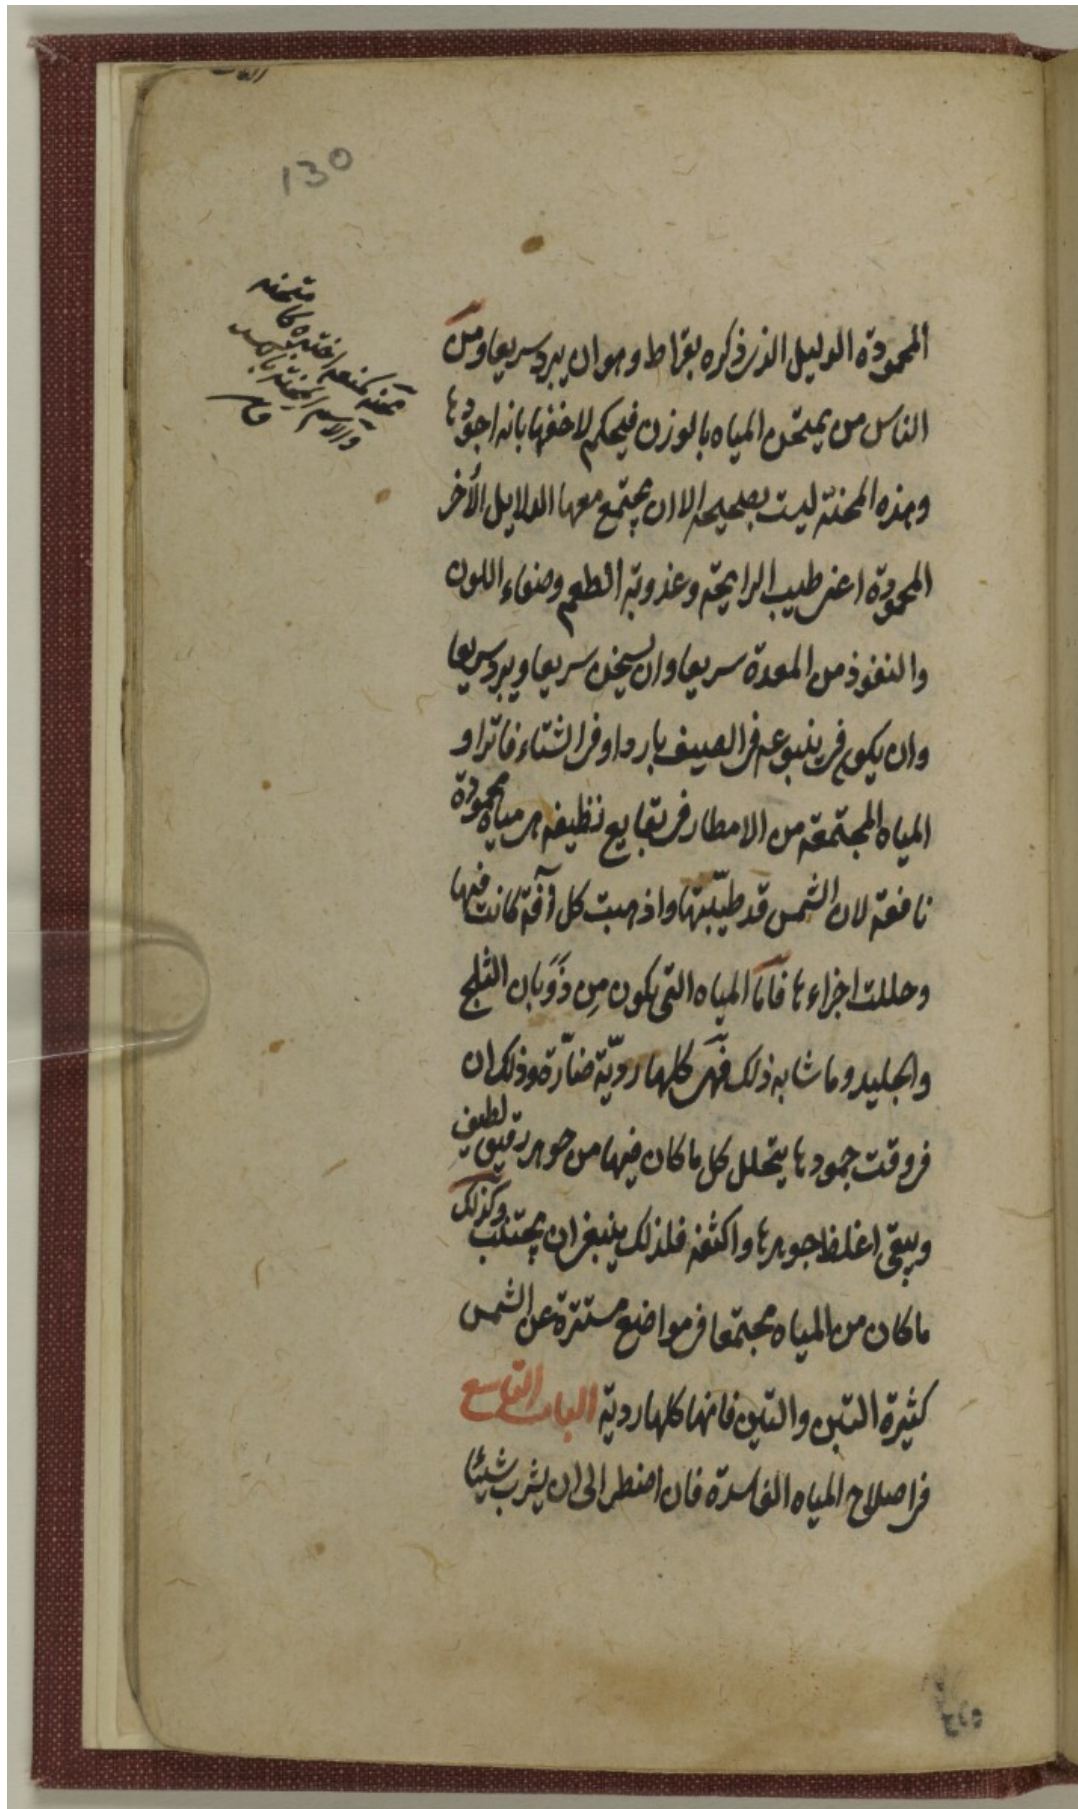 130
محنه كمنعه اختبره كامتحنه
والاسم المحنة بالكسر
المحمودة الدليل الذى ذكره بقراط وهو ان يبرد سريعا ومن
الناس من يمتحن المياه بالوزن فيحكم لاخفها بانه اجودها
وهذه المحنة ليست بصحيحه الا ان يجتمع معها الدلايل الأخر
المحمودة اعنى طيب الرايحة وعذوبة الطعم وصفاء اللون
والنفوذ من المعدة سريعا وان يسخن سريعا ويبرد سريعا
وان يكون فى ينبوعه فى الصيف باردا وفى الشتاء فاترا و
المياه المجتمعة من الامطار فى بقايع نظيفه هى مياه محمودة
نافعة لان الشمس قد طيّبتها واذهبت كل آفة كانت فيها
وحللت اجزاءها فامّا المياه التى تكون مِن ذَوَبان الثلج
والجليد وما شابه ذلك فهى كلها رديّة ضارّة وذلك ان
فى وقت جمودها يتحلل كل ما كان فيها من جوهر رقيق لطيف
ويبقى اغلظ جوهرها واكثفه فلذلك ينبغى ان يجتنب وكذلك
ما كان من المياه مجتمعا فى مواضع مستترة عن الشمس
كثيرة التبن والتين فانها كلها ردية الباب التاسع
فى اصلاح المياه الفاسدة فان اضطر الى ان يشرب شيئا